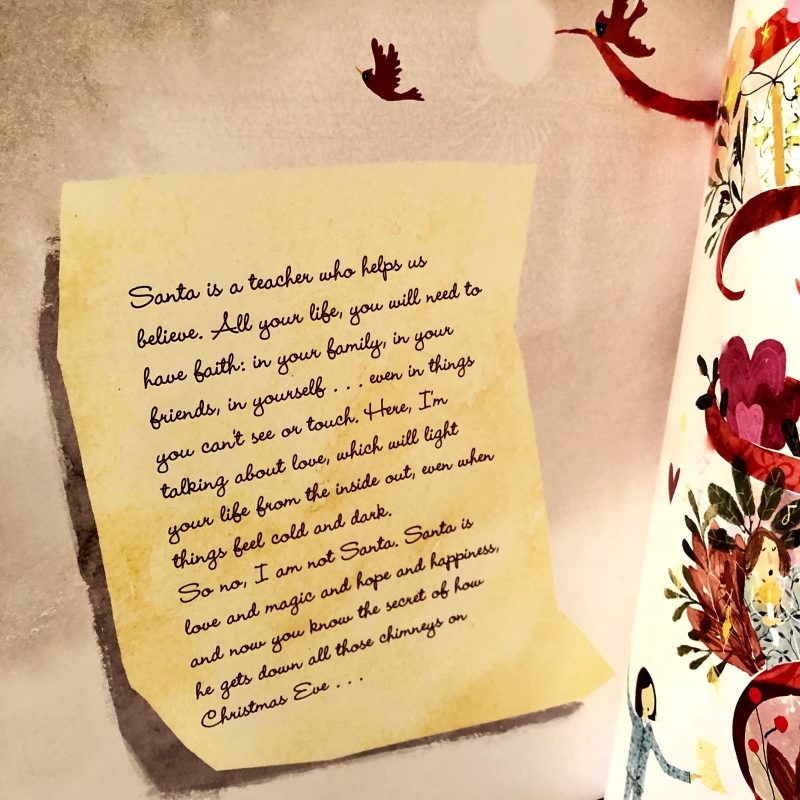 Santa is a teacher who helps us
believe. All your life, you will need to
have faith: in your family, in your
friends, in yourself . . . even in things
you can't see or touch. Here, I'm
talking about love, which will light
your life from the inside out, even when
things feel cold and dark.
So no, I am not Santa. Santa is
love and magic and hope and happiness,
and now you know the secret of how
he gets down all those chimneys on
Christmas Eve . . .